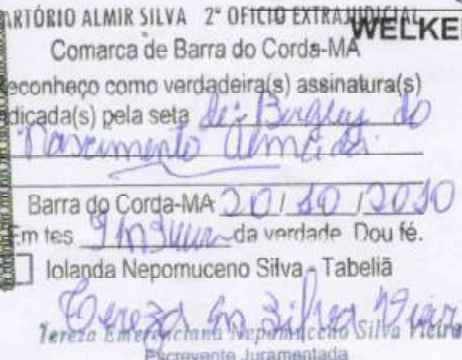 ARTÓRIO ALMIR SILVA 2º OFICIO EXTRAJUDICIAL
WELKE
Comarca de Barra do Corda-MA
econheço como verdadeira(s) assinatura(s)
dicada(s) pela seta de: do
Nascimento Almeida
Barra do Corda-MA 20/10/2010
m tes da verdade. Dou fé.
Iolanda Nepomuceno Silva - Tabeliã
Tereza Silva Vieira
Tereza Emerenciana Nepomuceno Silva Vieira
Escrevente Juramentada